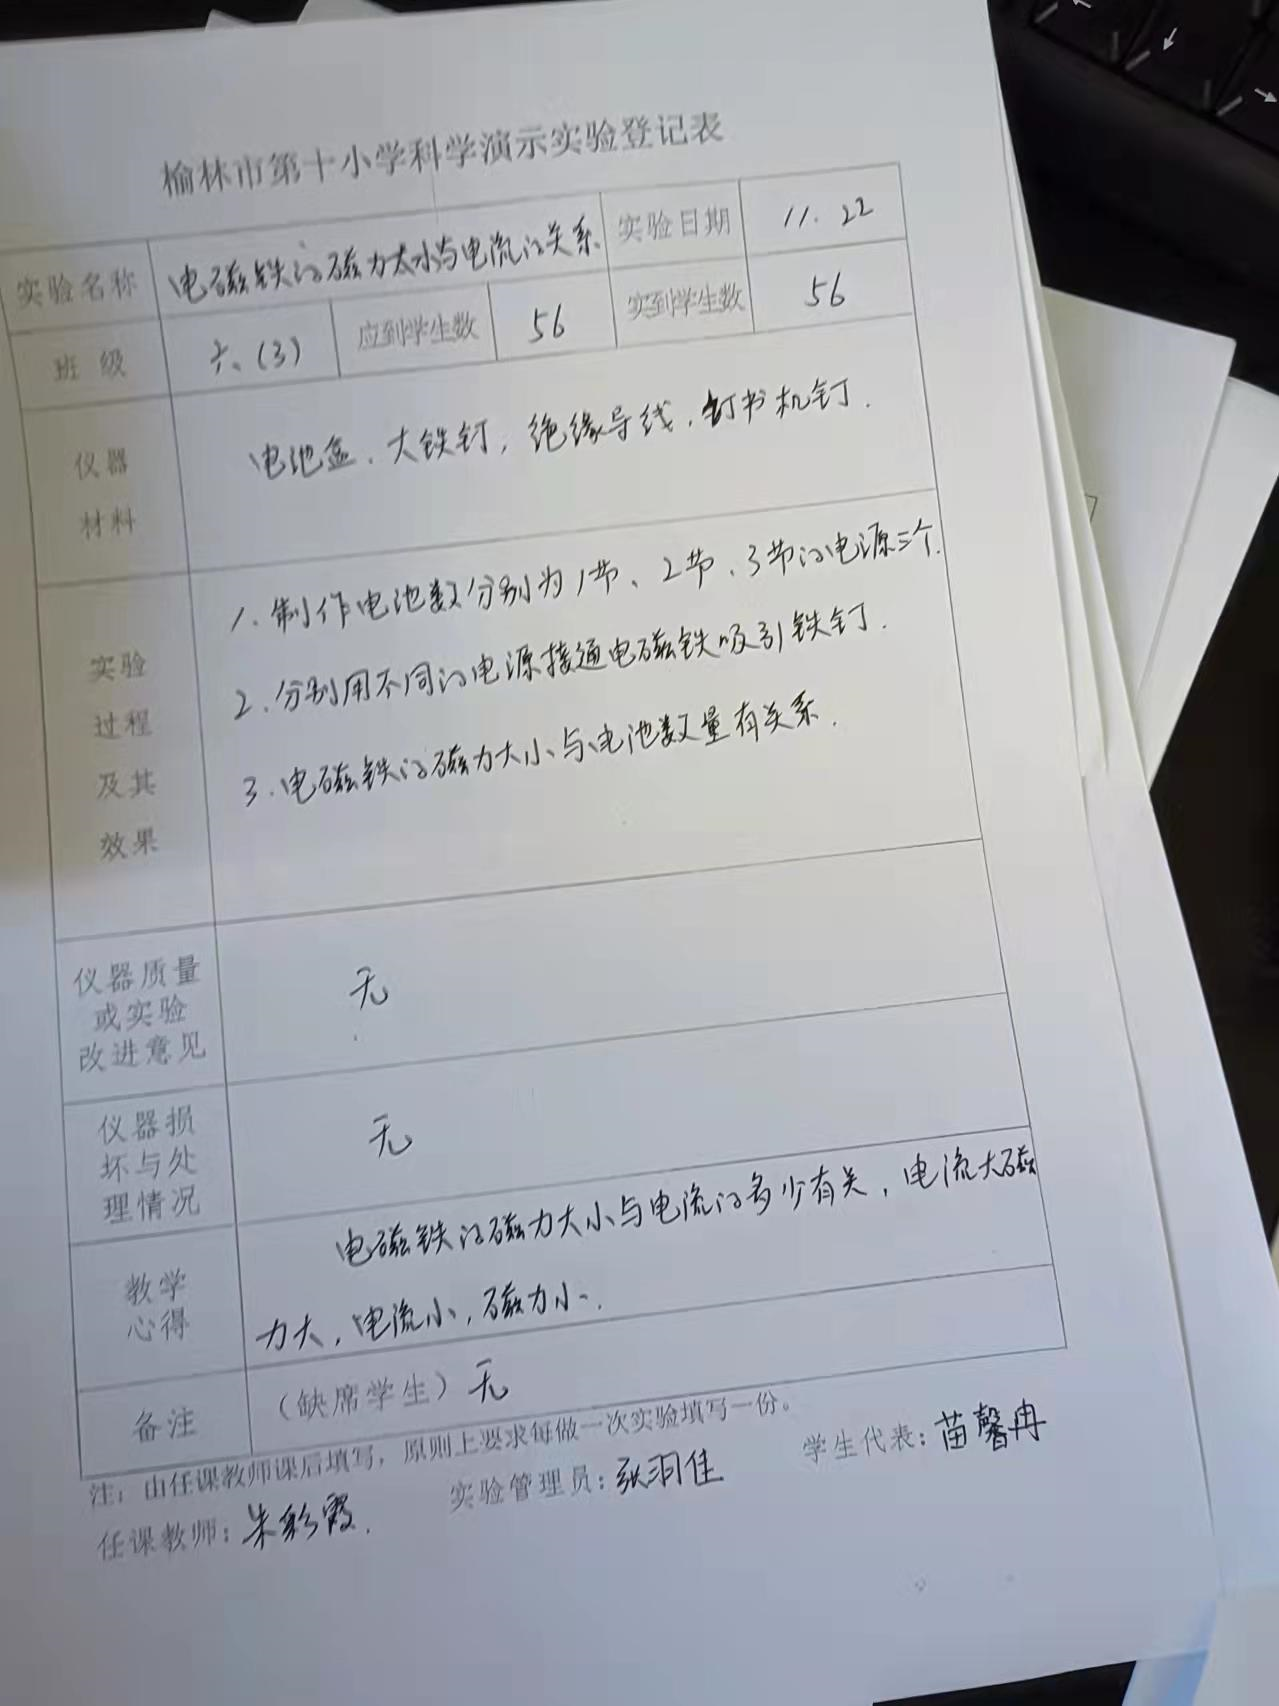 榆林市第十小学科学演示实验登记表
实验名称 电磁铁的磁力大小与电流的关系 实验日期 11.22
班 级 六、(3) 应到学生数 56 实到学生数 56
仪器
材料
电池盒、大铁钉，绝缘导线，钉书机钉.
实验
过程
及其
效果
1.制作电池数分别为1节、2节、3节的电源三个.
2.分别用不同的电源接通电磁铁吸引铁钉.
3.电磁铁的磁力大小与电池数量有关系.
仪器质量
或实验
改进意见
无
仪器损
坏与处
理情况
无
教学
心得
电磁铁的磁力大小与电流的多少有关，电流大磁
力大，电流小，磁力小.
备注 （缺席学生）无
注：由任课教师课后填写，原则上要求每做一次实验填写一份。
任课教师：朱彩霞. 实验管理员：张羽佳 学生代表：苗馨冉